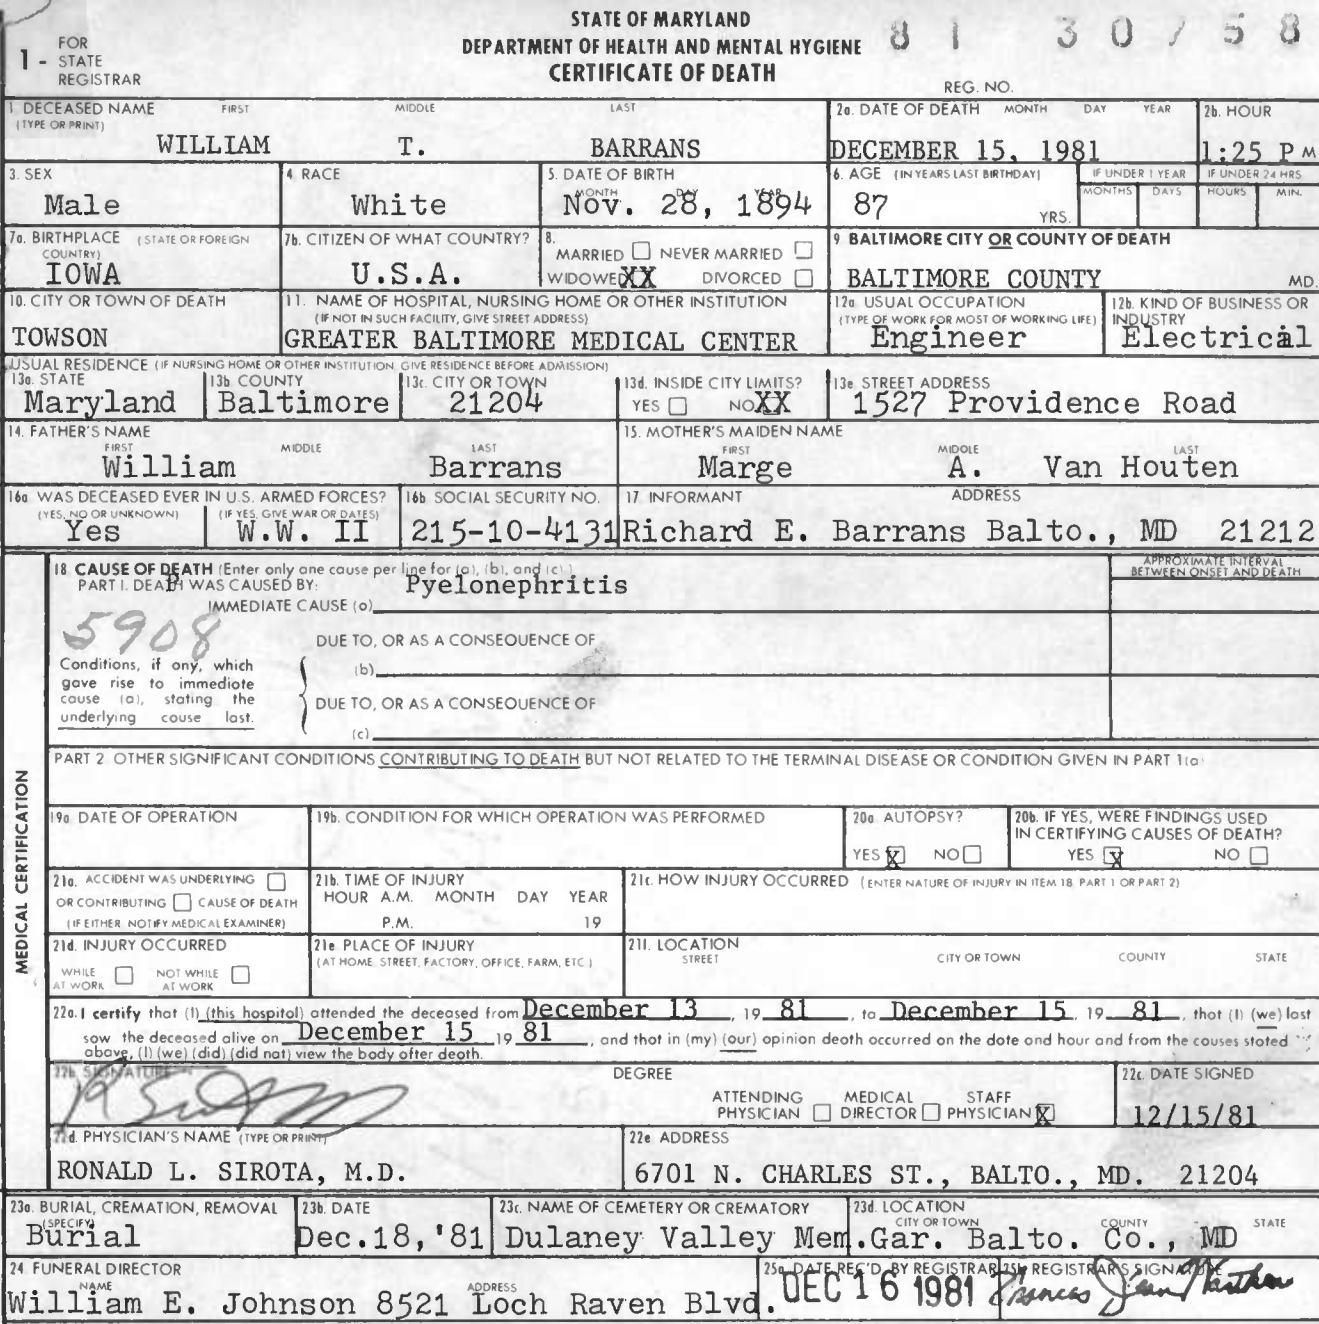 1 - FOR STATE REGISTRAR
STATE OF MARYLAND
DEPARTMENT OF HEALTH AND MENTAL HYGIENE
CERTIFICATE OF DEATH
81 30758
REG. NO.
1. DECEASED NAME FIRST MIDDLE LAST
(TYPE OR PRINT)
WILLIAM T. BARRANS
2a. DATE OF DEATH MONTH DAY YEAR
DECEMBER 15, 1981
2b. HOUR
1:25 P M
3. SEX
Male
4. RACE
White
5. DATE OF BIRTH
MONTH DAY YEAR
Nov. 28, 1894
6. AGE (IN YEARS LAST BIRTHDAY)
87 YRS.
IF UNDER 1 YEAR
MONTHS DAYS
IF UNDER 24 HRS
HOURS MIN.
7a. BIRTHPLACE (STATE OR FOREIGN
COUNTRY)
IOWA
7b. CITIZEN OF WHAT COUNTRY?
U.S.A.
8.
MARRIED NEVER MARRIED
WIDOWED XX DIVORCED
9 BALTIMORE CITY OR COUNTY OF DEATH
BALTIMORE COUNTY MD.
10. CITY OR TOWN OF DEATH
TOWSON
11. NAME OF HOSPITAL, NURSING HOME OR OTHER INSTITUTION
(IF NOT IN SUCH FACILITY, GIVE STREET ADDRESS)
GREATER BALTIMORE MEDICAL CENTER
12a USUAL OCCUPATION
(TYPE OF WORK FOR MOST OF WORKING LIFE)
Engineer
12b. KIND OF BUSINESS OR
INDUSTRY
Electrical
USUAL RESIDENCE (IF NURSING HOME OR OTHER INSTITUTION GIVE RESIDENCE BEFORE ADMISSION)
13a. STATE
Maryland
13b COUNTY
Baltimore
13c. CITY OR TOWN
21204
13d. INSIDE CITY LIMITS?
YES NO XX
13e STREET ADDRESS
1527 Providence Road
14. FATHER'S NAME
FIRST MIDDLE LAST
William Barrans
15. MOTHER'S MAIDEN NAME
FIRST MIDDLE LAST
Marge A. Van Houten
16a WAS DECEASED EVER IN U.S. ARMED FORCES?
(YES, NO OR UNKNOWN) (IF YES, GIVE WAR OR DATES)
Yes W.W. II
16b SOCIAL SECURITY NO.
215-10-4131
17 INFORMANT ADDRESS
Richard E. Barrans Balto., MD 21212
MEDICAL CERTIFICATION
18 CAUSE OF DEATH (Enter only one cause per line for (a), (b), and (c).)
PART I. DEATH WAS CAUSED BY:
Pyelonephritis
IMMEDIATE CAUSE (a)
APPROXIMATE INTERVAL
BETWEEN ONSET AND DEATH
5908
DUE TO, OR AS A CONSEQUENCE OF
(b)
Conditions, if any, which
gave rise to immediate
cause (a), stating the
underlying cause last.
DUE TO, OR AS A CONSEQUENCE OF
(c)
PART 2 OTHER SIGNIFICANT CONDITIONS CONTRIBUTING TO DEATH BUT NOT RELATED TO THE TERMINAL DISEASE OR CONDITION GIVEN IN PART 1(a)
19a DATE OF OPERATION
19b. CONDITION FOR WHICH OPERATION WAS PERFORMED
20a AUTOPSY?
YES X NO
20b. IF YES, WERE FINDINGS USED
IN CERTIFYING CAUSES OF DEATH?
YES X NO
21a. ACCIDENT WAS UNDERLYING
OR CONTRIBUTING CAUSE OF DEATH
(IF EITHER NOTIFY MEDICAL EXAMINER)
21b. TIME OF INJURY
HOUR A.M. MONTH DAY YEAR
P.M. 19
21c. HOW INJURY OCCURRED (ENTER NATURE OF INJURY IN ITEM 18 PART 1 OR PART 2)
21d. INJURY OCCURRED
WHILE AT WORK NOT WHILE AT WORK
21e PLACE OF INJURY
(AT HOME STREET, FACTORY, OFFICE, FARM, ETC.)
21f. LOCATION
STREET CITY OR TOWN COUNTY STATE
22a. I certify that (I) (this hospital) attended the deceased from December 13, 19 81, to December 15, 19 81, that (I) (we) last
saw the deceased alive on December 15 19 81, and that in (my) (our) opinion death occurred on the date and hour and from the causes stated
above, (I) (we) (did) (did not) view the body after death.
22b SIGNATURE
DEGREE
ATTENDING PHYSICIAN MEDICAL DIRECTOR STAFF PHYSICIAN X
22c. DATE SIGNED
12/15/81
22d. PHYSICIAN'S NAME (TYPE OR PRINT)
RONALD L. SIROTA, M.D.
22e ADDRESS
6701 N. CHARLES ST., BALTO., MD. 21204
23a. BURIAL, CREMATION, REMOVAL
(SPECIFY)
Burial
23b. DATE
Dec.18,'81
23c. NAME OF CEMETERY OR CREMATORY
Dulaney Valley Mem.Gar.
23d. LOCATION
CITY OR TOWN COUNTY STATE
Balto. Co., MD
24 FUNERAL DIRECTOR
NAME ADDRESS
William E. Johnson 8521 Loch Raven Blvd.
25a DATE REC'D BY REGISTRAR
DEC 16 1981
25b REGISTRAR'S SIGNATURE
Frances Jean